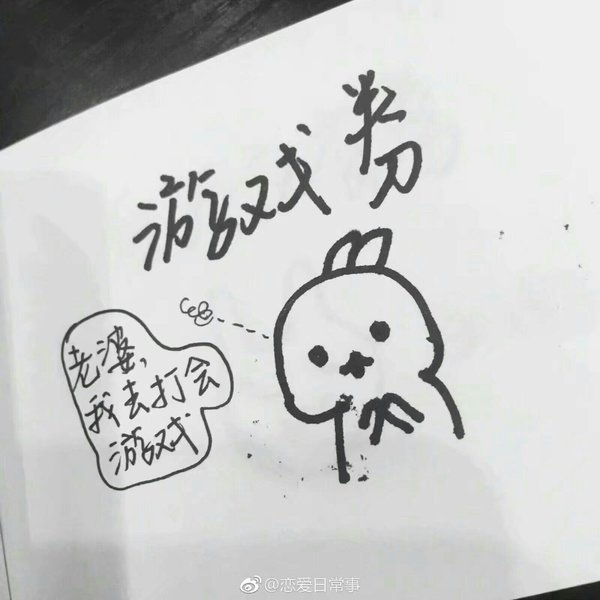 游戏券
老婆,
我去打会
游戏
@恋爱日常事